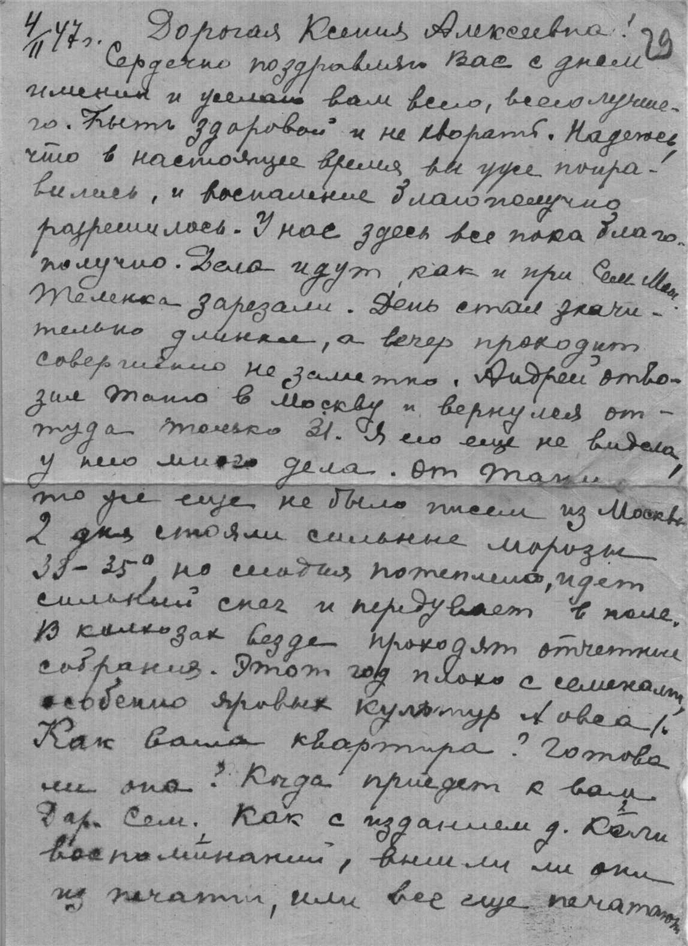 4/II 47 г. Дорогая Ксения Алексеевна! 29
Сердечно поздравляю Вас с днем
имении и желаю вам всего, всего лучше-
го. Быть здоровой и не хворать. Надеюсь,
что в настоящее время вы уже попра-
вились, и воспаление благополучно
разрешилось. У нас здесь все пока благо-
получно. Дела идут, как и при Сем
Теленка зарезали. День стал значи-
тельно длинней, а вечер проходит
совершенно не заметно. Андрей отво-
зил Таню в Москву и вернулся от-
туда только 31. Я его еще не видела,
у него много дела. От Тани
то же еще не было писем из Москвы
2 дня стояли сильные морозы
33-35°, но сегодня потеплело, идет
сильный снег и передувает в поле.
В колхозах везде проходят отчетные
собрания. Этот год плохо с семенами,
особенно яровых культур /овса/.
Как ваша квартира? Готова
ли она? Когда приедет к вам
Дар. Сем. Как с изданием д. Коли
воспоминаний, вышли ли они
из печати, или все еще печатают